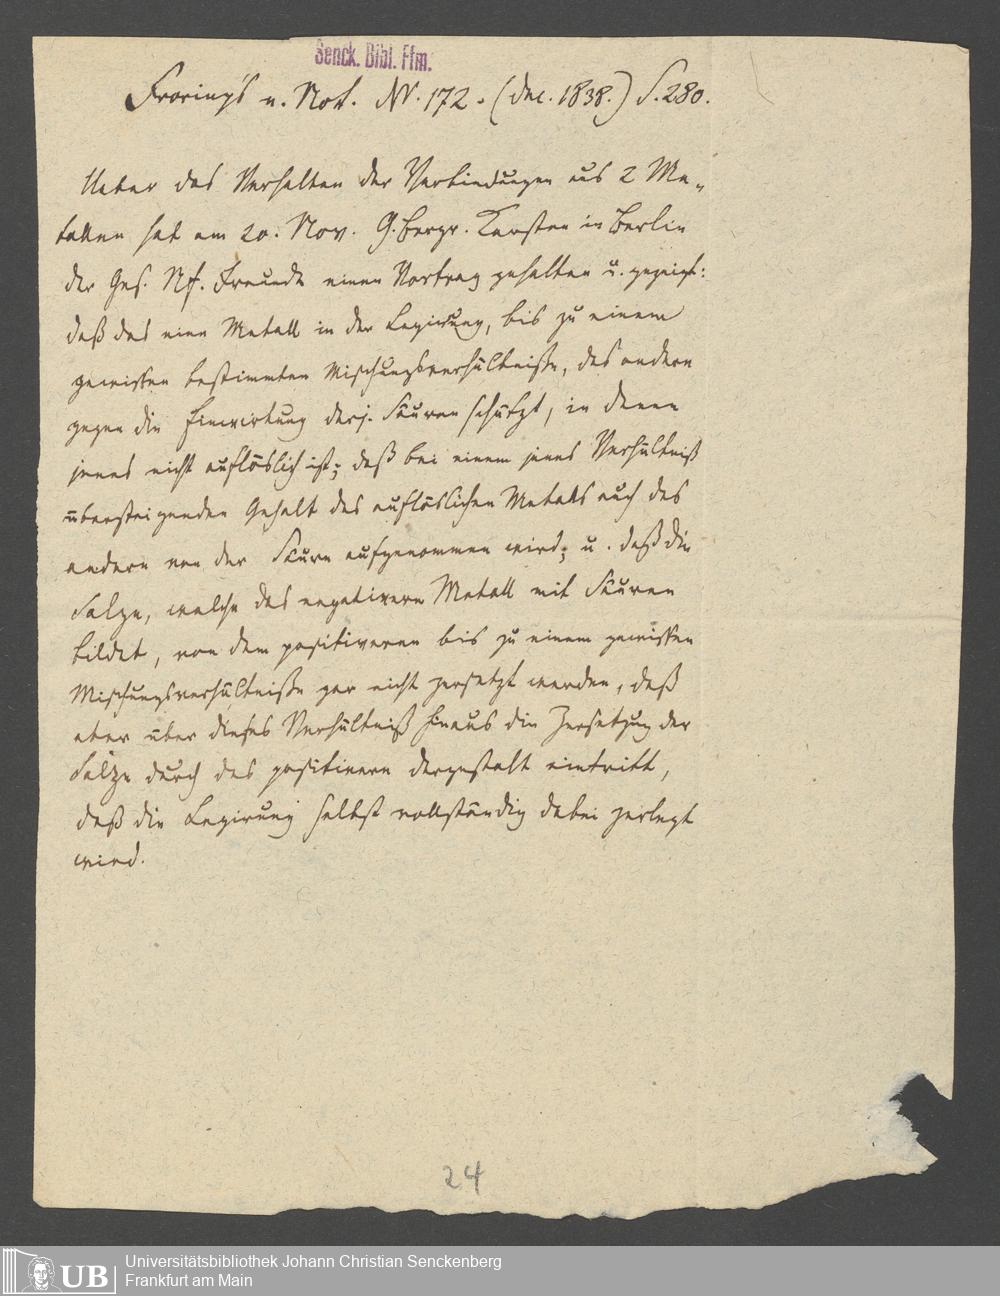 Senck. Bibl. Ffm.
Froriep's n. Not. N. 172. (dec. 1838.) S. 280.
Ueber das Verhalten der Verbindungen aus 2 Me-
tallen hat am 20. Nov. G. Bergr. Karsten in Berlin
der Ges. Ntf. Freunde einen Vortrag gehalten u. gezeigt:
daß das eine Metall in der Legirung, bis zu einem
gewissen bestimmten Mischungsverhältnisse, das andere
gegen die Einwirkung derj. Säuren schützt, in denen
jenes nicht auflöslich ist; daß bei einem jenes Verhältniß
übersteigenden Gehalt des auflöslichen Metalls auch das
andere von der Säure aufgenommen wird; u. daß die
Salze, welche das negativere Metall mit Säuren
bildet, von dem positiveren bis zu einem gewissen
Mischungsverhältnisse gar nicht zersetzt werden, daß
aber über dieses Verhältniß hinaus die Zersetzung der
Salze durch das positivere dergestalt eintritt,
daß die Legirung selbst vollständig dabei zerlegt
wird.
24
UB
Universitätsbibliothek Johann Christian Senckenberg
Frankfurt am Main